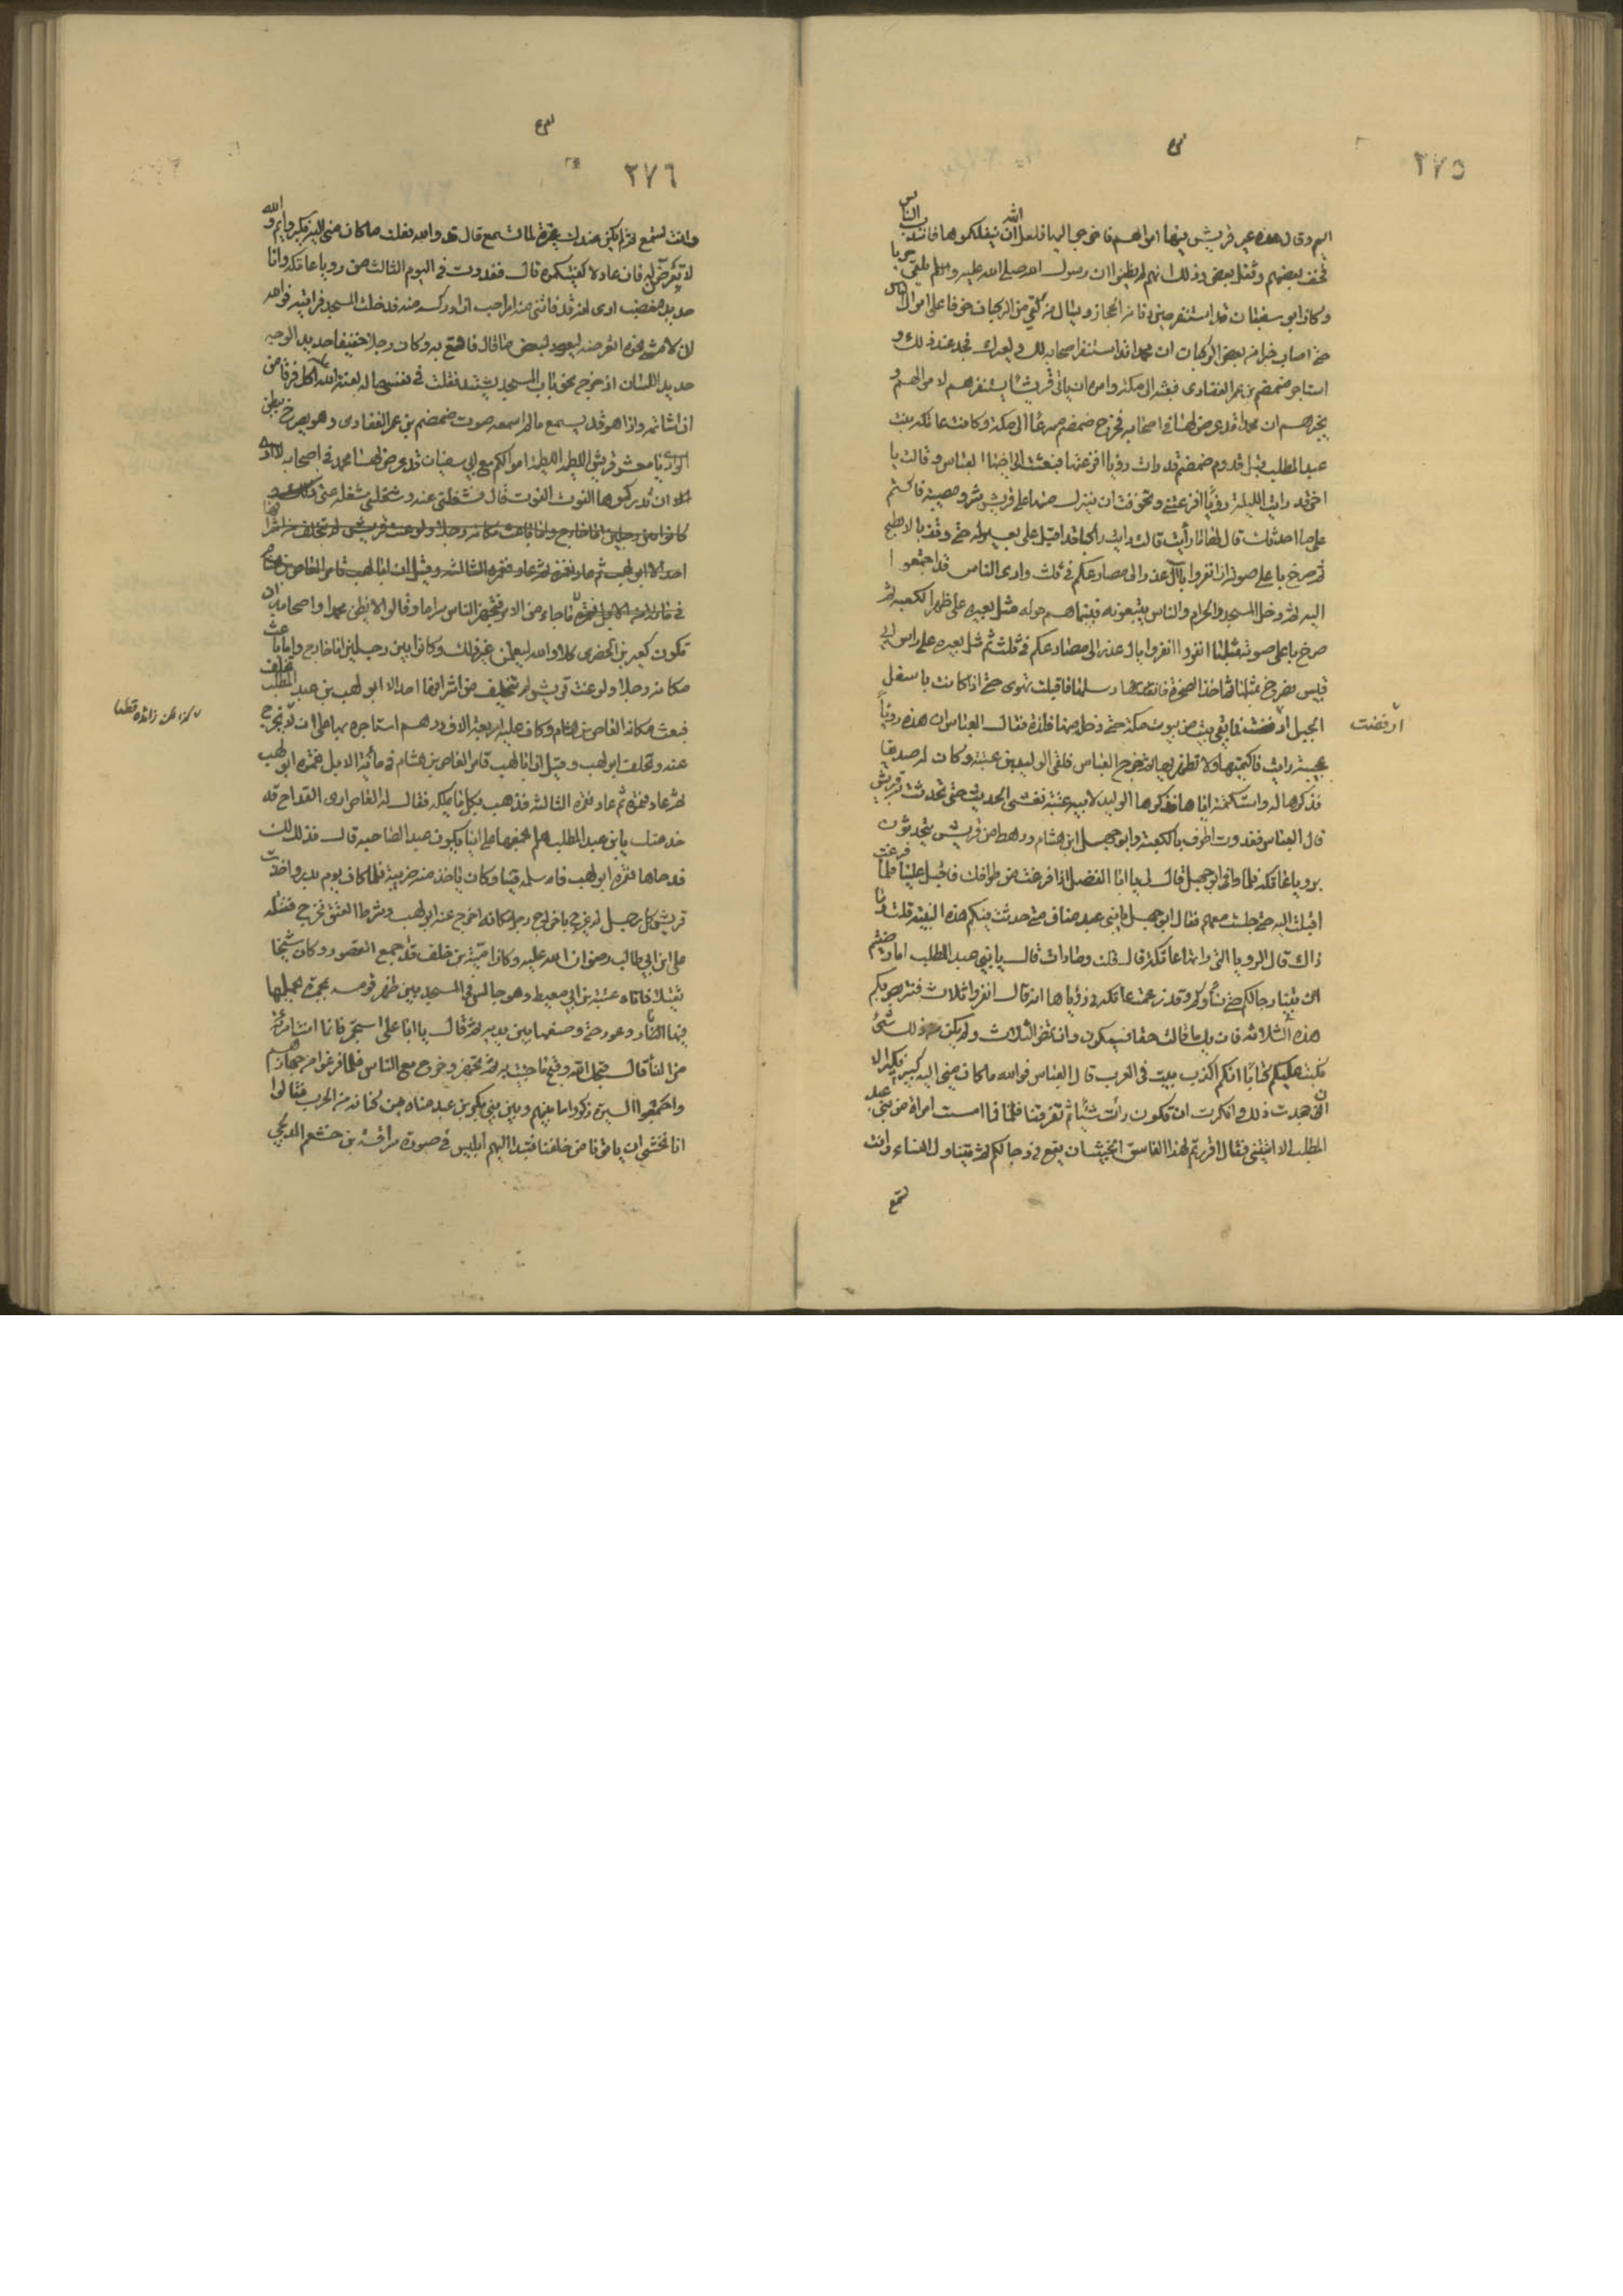 ٢٧٥
اليهم وقال هذه عير قريش فيها اموالهم فاخرجوا اليها فلعل الله ان ينفلكموها فانتدب الناس
فخف بعضهم وثقل بعض وذلك انهم لم يظنوا ان رسول الله صلى الله عليه وسلم يلقى حربا
وكان ابو سفيان قد استنفر حين دنا من الحجاز ويسال من لقي من الركبان خوفا على اموال الناس
حتى اصاب خبرا من بعض الركبان ان محمدا قد استنفر اصحابه لك ولعيرك فحذر عند ذلك و
استاجر ضمضم بن عمر الغفارى فبعثه الى مكة وامره ان ياتي قريشا يستنفرهم لاموالهم و
يخبرهم ان محمدا قد عرض لها في اصحابه فخرج ضمضم سرعا الى مكة وكانت عاتكة بنت
عبد المطلب قبل قدوم ضمضم قد رات رؤيا افزعتها فبعثت الى اخيها العباس وقالت يا
اخي قد رايت الليلة رؤيا افزعتني وتخوفت ان ينزل منها على قريش شر ومصيبة فاكتم
على ما احدثك قال لها ما رأيت قالت رايت راكبا قد اقبل على بعير له حتى وقف بالابطح
ثم صرخ باعلى صوته ان انفروا يا آل غدر الى مصارعكم في ثلث وارى الناس قد اجتمعوا
اليه ثم دخل المسجد الحرام والناس يتبعونه فبينما هم حوله مثل بعيره على ظهر الكعبة ثم
صرخ باعلى صوته بمثلها انفروا انفروا يال غدر الى مصارعكم في ثلث ثم مثل بعيره على راس ابي
قبيس فصرخ بمثلها ثم اخذ الصخرة فارسلها فاقبلت تهوى حتى اذا كانت باسفل
الجبل ارفضت فما بقي بيت من بيوت مكة حتى دخله منها فلذة فقال العباس ان هذه رؤيا
ارفضت
عجيبة رايت فاكتميها ولا تظهريها ثم خرج العباس فلقى الوليد بن عتبة وكان له صديقا
فذكرها له واستكتمه اياها فذكرها الوليد لابيه عتبة ففشى الحديث حتى تحدثت به قريش
قال العباس فغدوت اطوف بالكعبة وابو جهل ابن هشام ورهط من قريش يتحدثون
برويا عاتكة فلما راني ابو جهل قال لي يا ابا الفضل اذا فرغت من طوافك فاقبل علينا فلما فرغت
اقبلت اليه حتى جلست معهم فقال ابو جهل يا بني عبد مناف متى حدثت فيكم هذه النبية قلت وما
ذاك قال الرويا التي راتها عاتكة قال قلت وما رات قال يا بني عبد المطلب اما رضيتم
ان تتنبا رجالكم حتى تنباء نساؤكم وقد زعمت عاتكة في رؤياها انه قال انفروا ثلاث فنتربص بكم
هذه الثلاثة فان يك ما قالت حقا فسيكون وان تمض الثلاث ولم يكن من ذلك شئ
نكتب عليكم كتابا انكم اكذب بيت في العرب قال العباس فوالله ما كان مني اليه كبير نكير الا
اني جحدت ذلك وانكرت ان تكون رأت شيأ ثم تفرقنا فلما امست امراة من بني عبد
المطلب الا اتتني فقال اقررتم لهذا الفاسق الخبيث ان يقع في رجالكم ثم يتناول النساء وانت
تسمع
٢٧٦
وانت تسمع ثم لم يكن عندك غيرة لما تسمع قال قد والله فعلت ما كان مني اليه نكير وايم الله
لا تعرضن له فان عاد لا كفيتكموه قال فغدوت في اليوم الثالث من رويا عاتكة وانا
حديد مغضب ارى انه قد فاتني منه امر احب ان ادركه منه فدخلت المسجد فرايته فوالله
اني لامشي نحوه اتعرضه ليعود لبعض ما قال فاقع به وكان رجلا خفيفا حديد الوجه
حديد اللسان اذ خرج نحو باب المسجد يشتد فقلت في نفسي ماله لعنه الله اكل هذا فرقا من
ان اشاتمه واذا هو قد يسمع مالم اسمع صوت ضمضم بن عمر الغفارى وهو يصرخ ببطن
الوادي يا معشر قريش اللطيمة اللطيمة اموالكم مع ابي سفيان قد عرض لها محمد في اصحابه لا ارى
ان تدركوها الغوث الغوث قال فشغلني عنه وشغله عني
كانوا بين رجلين اما خارج واما باعث مكانه رجلا ولوعبت قريش لم يتخلف من اشرافها
احد الا ابو لهب ثم عاد فقمره ثم عاد فقمره الثالثه وقيل ان ابا لهب قامر العاص بن هشام
في ماجاء من الامر فتجهز الناس سراعا وقالوا لا يظن محمدا واصحابه ان
تكون كعير بن الحضرى كلا والله ليعلمن غير ذلك وكانوا بين رجلين اما خارج واما باعث
مكانه رجلا ولوعبت قريش لم يتخلف من اشرافها احد الا ابو لهب بن عبد المطلب تخلف
فبعث مكانه العاص بن هشام وكان عليه اربعة الاف درهم استاجره بها على ان يخرج
عنه وتخلف ابو لهب وقيل ان ابا لهب قامر العاص بن هشام في مأية الابل فقمره ابو لهب
ثم عاد فقمره ثم عاد فقمره الثالثه فذهب بكل ما يملكه فقال له العاص ارى القداح قد
حالفتك يا بن عبد المطلب هلم نجعلها على اينا يكون عبدا لصاحبه قال فذلك لك
فدحاها فقمره ابو لهب فاسلمه قينا وكان ياخذ منه ضريبة فلما كان يوم بدر واخذت
قريش كل رجل لم يخرج باخراج رجل مكانه اخرج عنه ابو لهب وشرط العتق فخرج فقتله
علي ابن ابي طالب رضوان الله عليه وكان امية بن خلف قد اجمع القعود وكان شيخا
ثقيلا فاتاه عتبة بن ابي معيط وهو جالس في المسجد بين ظهر قومه بمجمرة يحملها
فيها النار وعود حتى وضعها بين يديه ثم قال يا ابا علي استجمر فانما انت امرأة
من النسأ قال قبحك الله وقبح ما جئت به ثم تجهز وخرج مع الناس فلما فرغوا من جهازهم
واجمعوا السيرة ذكروا ما بينهم وبين بني بكر بن عبد مناه من كنانه من الحرب فقالوا
انا نخشى ان ياتونا من خلفنا فتبدا اليهم ابليس في صورة سراقة بن جعشم المدلجي